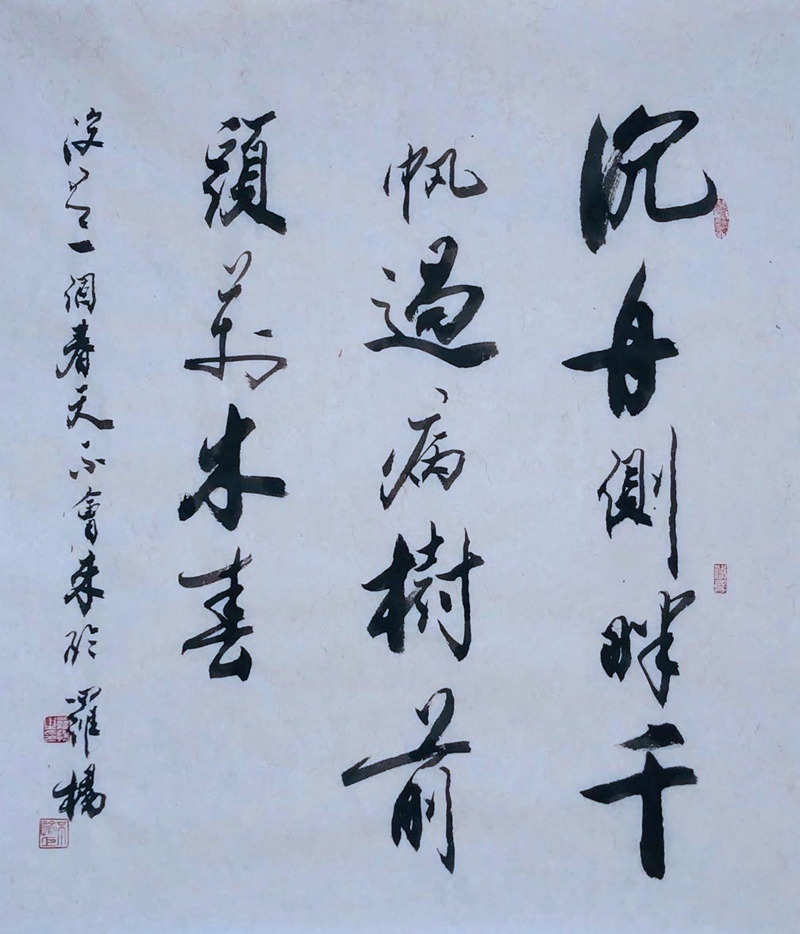 沉舟側畔千
帆過病樹前
頭萬木春
沒有一個春天不會来臨 羅楊